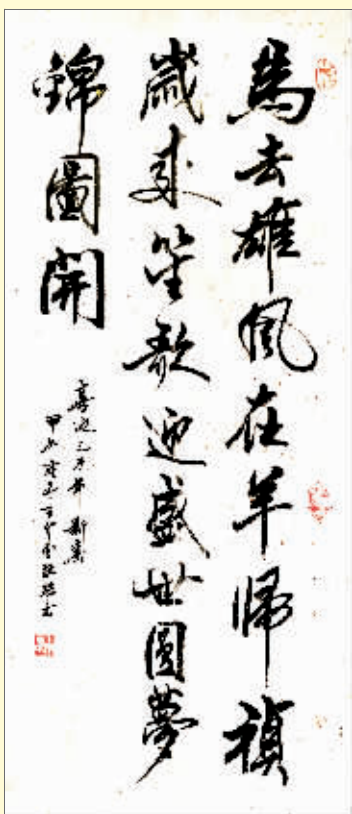 馬去雄風在羊歸禎
歲來笙歌迎盛世圓夢
錦圖開
喜迎乙未年
甲午